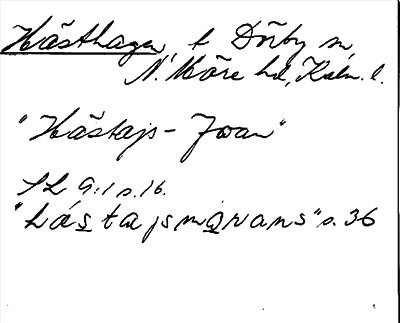 Hästhagen, t. Dörby sn,
N. Möre hd, Kalm. l.
"Hästajs-Joan"
SL 9:1 s. 16.
"hástajsmọrans" s. 36